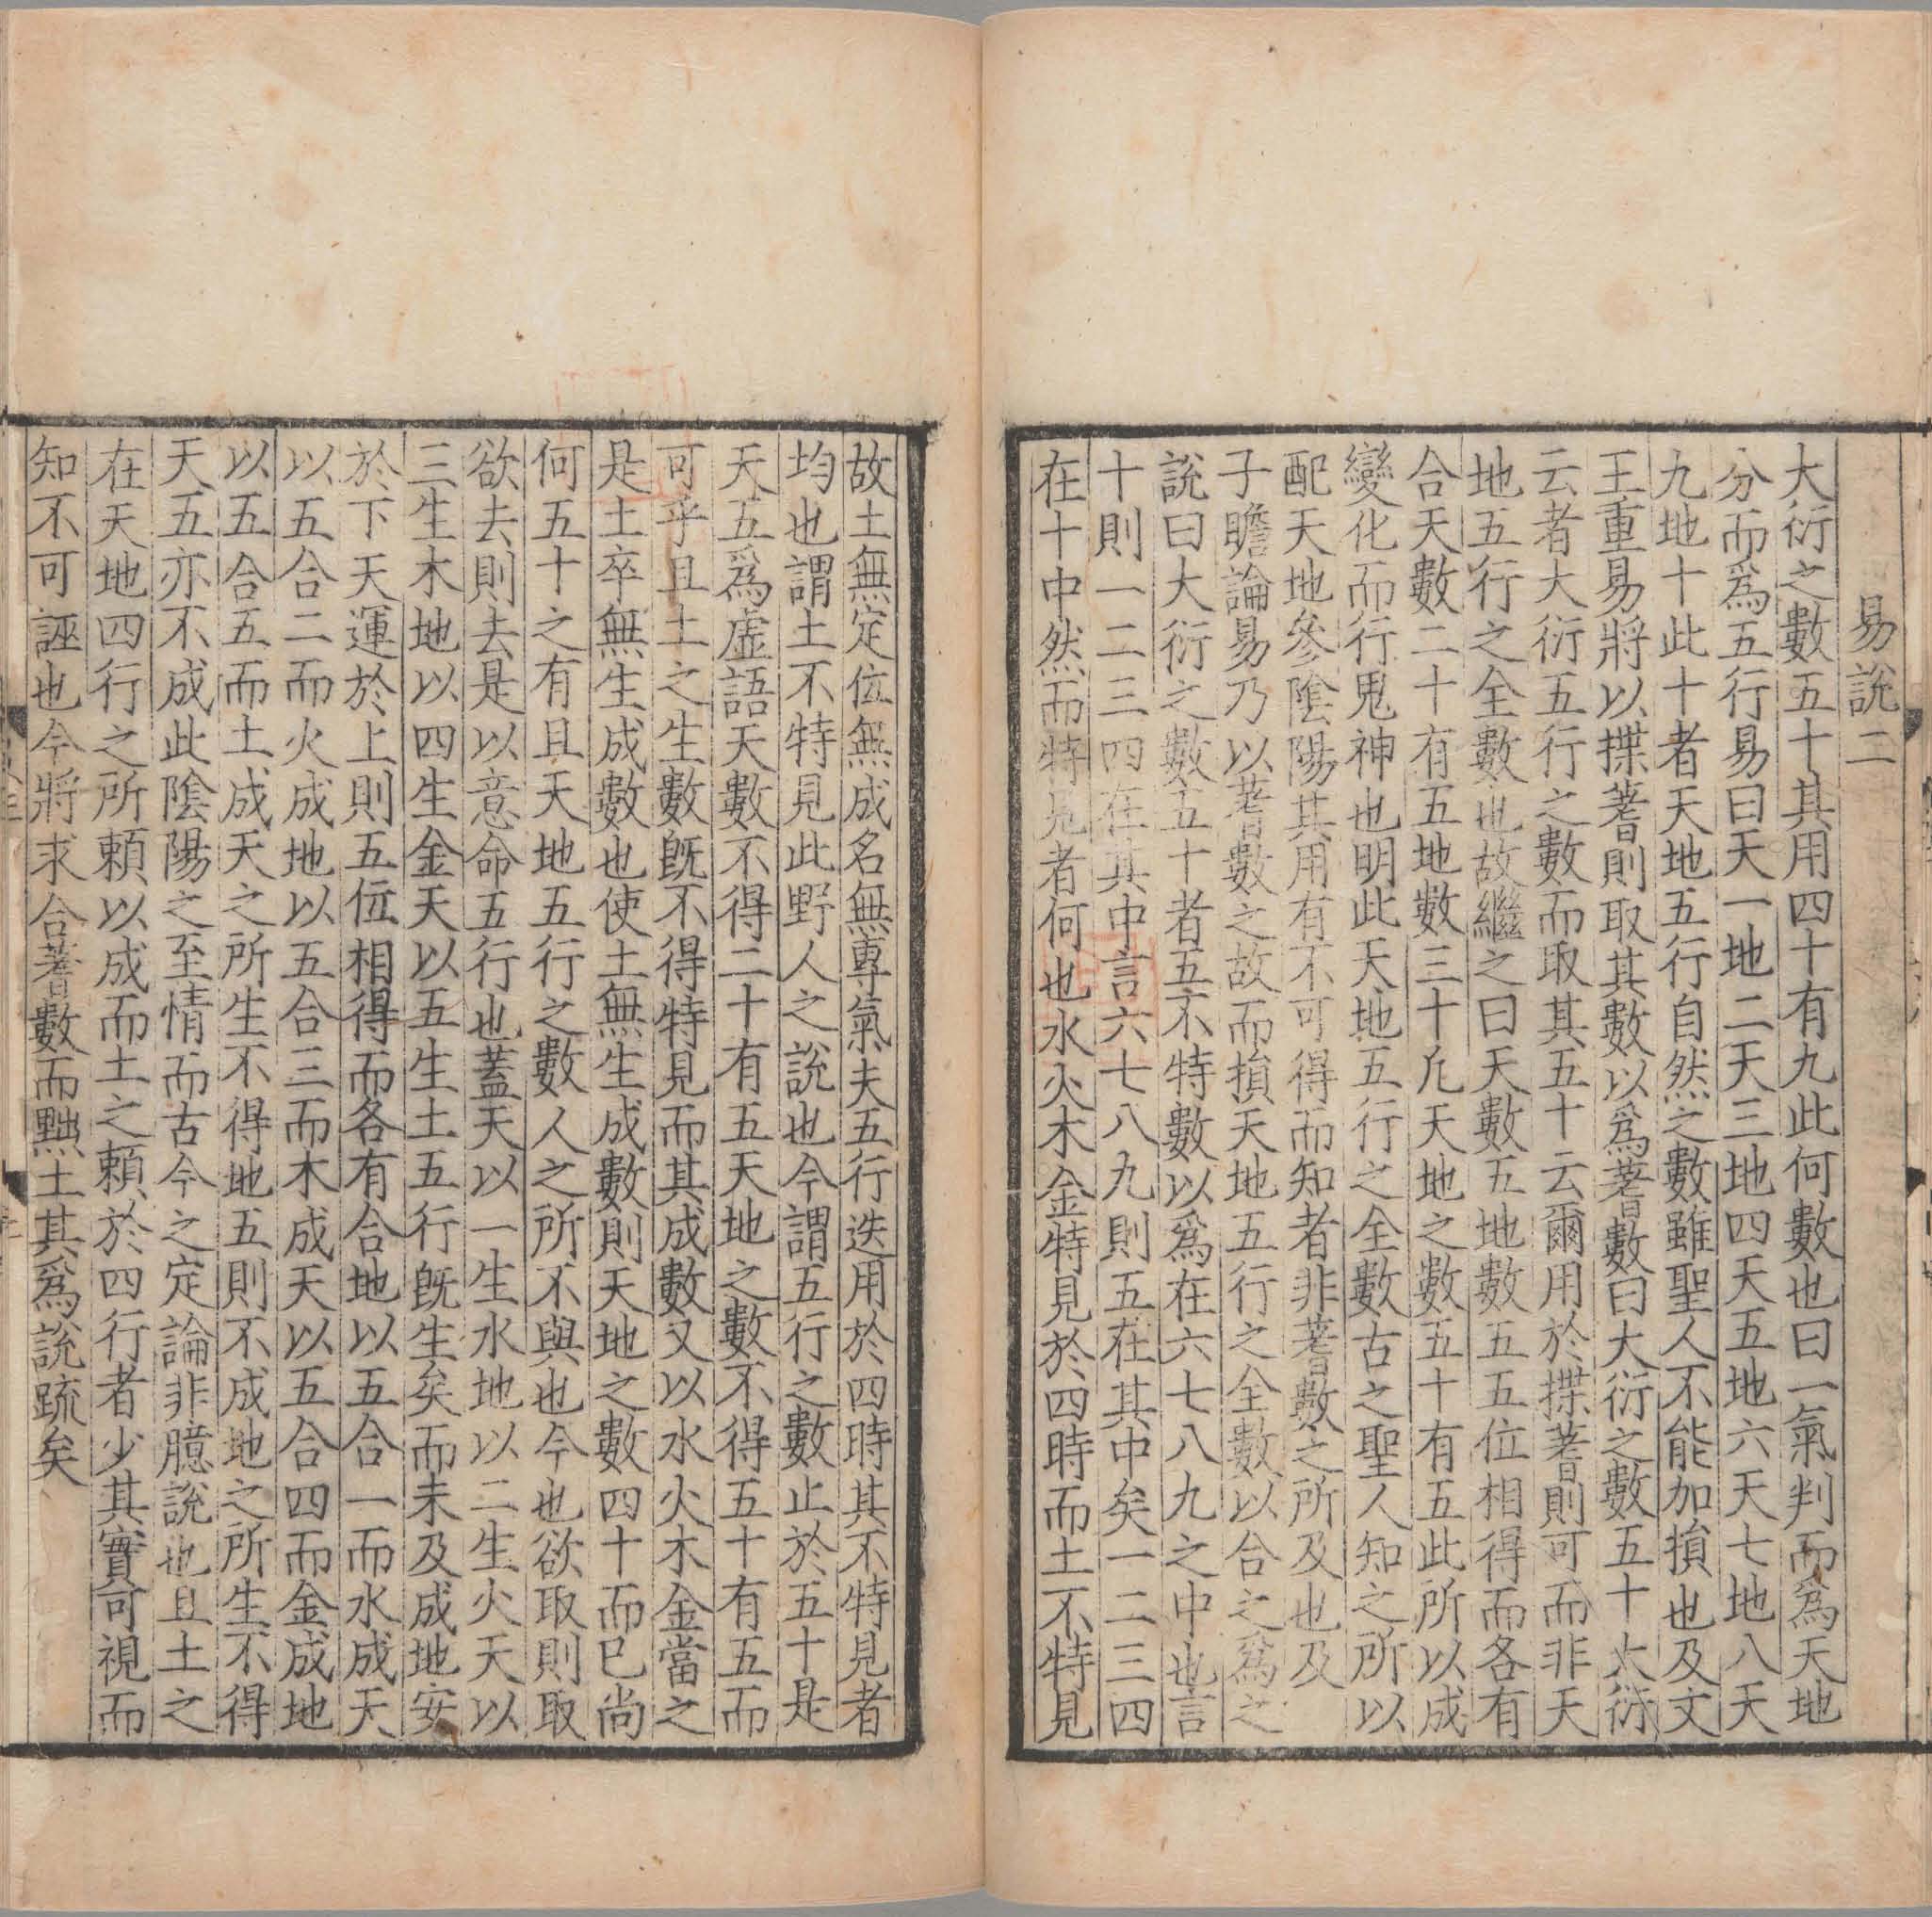 易說二
大衍之數五十其用四十有九此何數也曰一氣判而爲天地
分而爲五行易曰天一地二天三地四天五地六天七地八天
九地十此十者天地五行自然之數雖聖人不能加損也及文
王重易將以揲蓍則取其數以爲蓍數曰大衍之數五十大衍
云者大衍五行之數而取其五十云爾用於揲蓍則可而非天
地五行之全數也故繼之曰天數五地數五五位相得而各有
合天數二十有五地數三十凡天地之數五十有五此所以成
變化而行鬼神也明此天地五行之全數古之聖人知之所以
配天地參隂陽其用有不可得而知者非蓍數之所及也及
子瞻論易乃以蓍數之故而損天地五行之全數以合之爲之
說曰大衍之數五十者五不特數以爲在六七八九之中也言
十則一二三四在其中言六七八九則五在其中矣一二三四
在十中然而特見者何也水火木金特見於四時而土不特見
故土無定位無成名無專氣夫五行迭用於四時其不特見者
均也謂土不特見此野人之說也今謂五行之數止於五十是
天五爲虛語天數不得二十有五天地之數不得五十有五而
可乎且土之生數旣不得特見而其成數又以水火木金當之
是土卒無生成數也使土無生成數則天地之數四十而已尚
何五十之有且天地五行之數人之所不與也今也欲取則取
欲去則去是以意命五行也蓋天以一生水地以二生火天以
三生木地以四生金天以五生土五行旣生矣而未及成地安
於下天運於上則五位相得而各有合地以五合一而水成天
以五合二而火成地以五合三而木成天以五合四而金成地
以五合五而土成天之所生不得地五則不成地之所生不得
天五亦不成此隂陽之至情而古今之定論非臆說也且土之
在天地四行之所賴以成而土之賴於四行者少其實可視而
知不可誣也今將求合蓍數而黜土其爲說疏矣